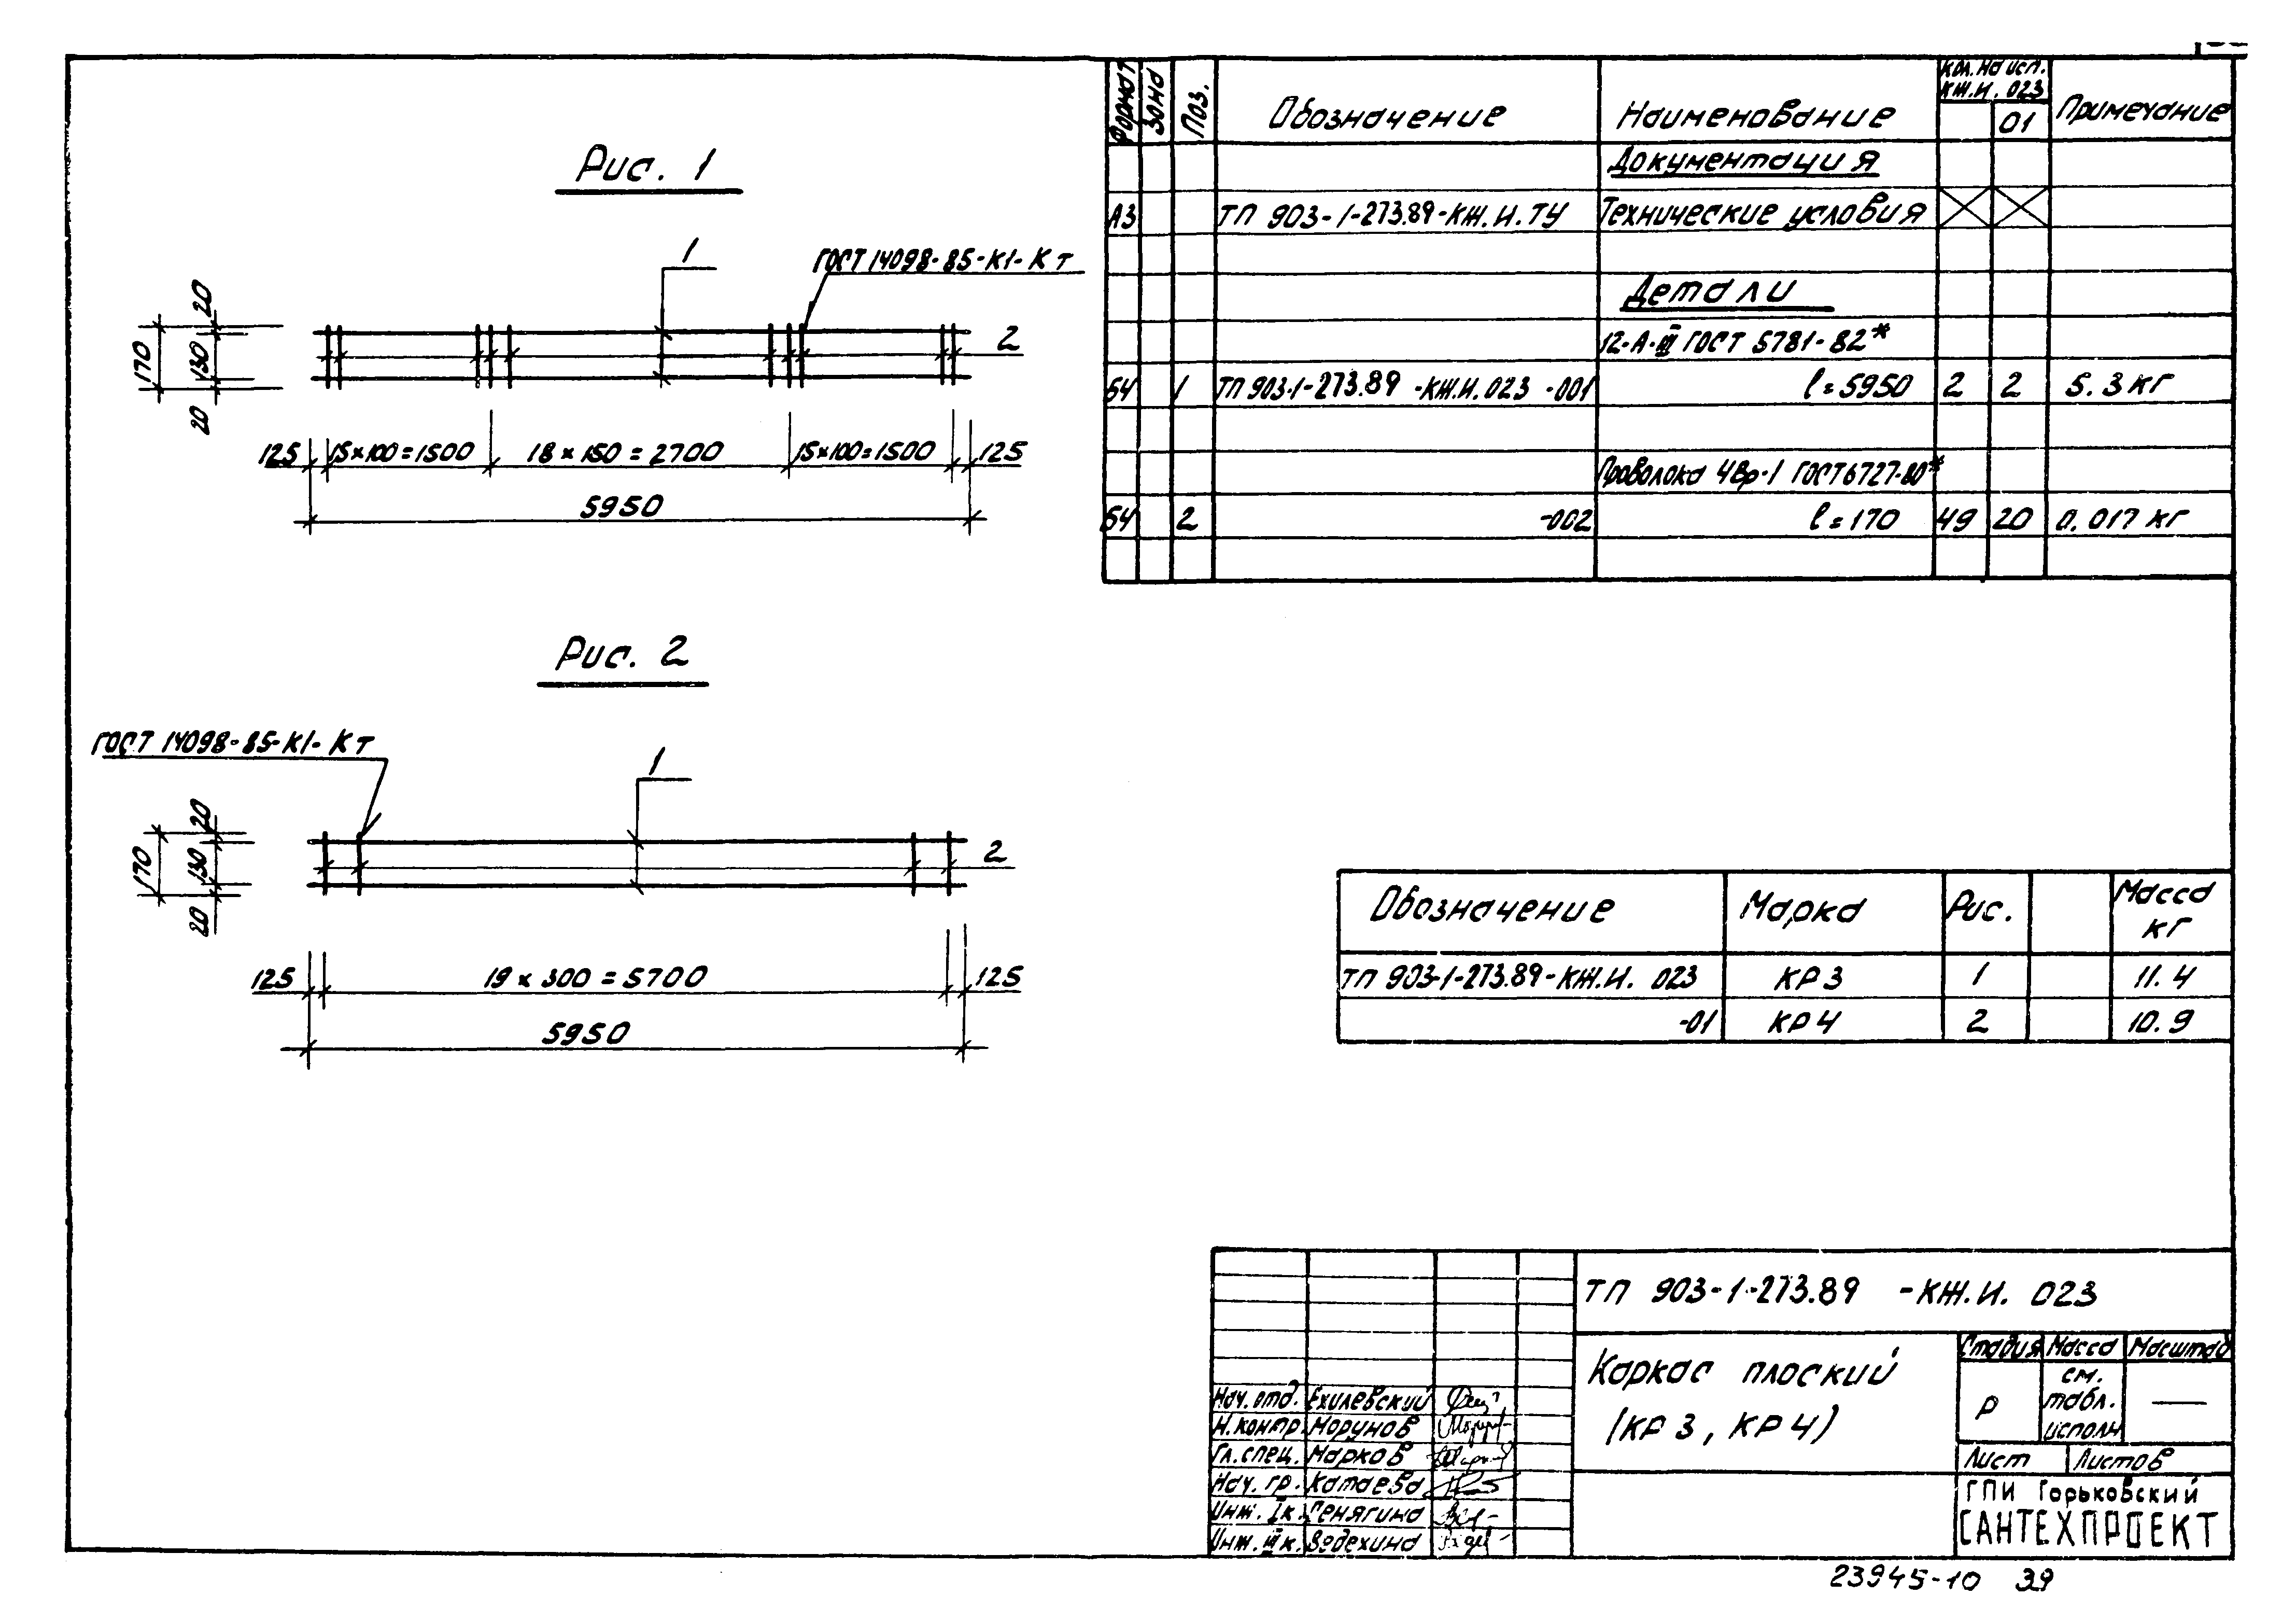 Рис. 1
1
ГОСТ 14098-85-К1-Кт
2
170
20
130
20
125 15×100=1500 18×150=2700 15×100=1500 125
5950
Рис. 2
ГОСТ 14098-85-К1-Кт
1
2
170
20
130
20
125 19×300=5700 125
5950
Формат Зона Поз. Обозначение Наименование Кол. на исп. КЖ.И.023 01 Примечание
Документация
А3 ТП 903-1-273.89-КЖ.И.ТУ Технические условия
Детали
12-А-III ГОСТ 5781-82*
Б4 1 ТП 903-1-273.89-КЖ.И.023-001 l=5950 2 2 5.3 кг
Проволока 4Вр-1 ГОСТ 6727-80*
Б4 2 -002 l=170 49 20 0.017 кг
Обозначение Марка Рис. Масса кг
ТП 903-1-273.89-КЖ.И. 023 КР3 1 11.4
-01 КР4 2 10.9
ТП 903-1-273.89 -КЖ.И. 023
Каркас плоский
(КР3, КР4)
Стадия Масса Масштаб
Р см. табл. исполн —
Лист Листов
ГПИ Горьковский
САНТЕХПРОЕКТ
Нач. отд. Ехилевский
Н.контр. Морунов
Гл.спец. Марков
Нач. гр. Катаева
Инж. Iк. Сенягина
Инж. IIIк. Ведехина
23945-10 39